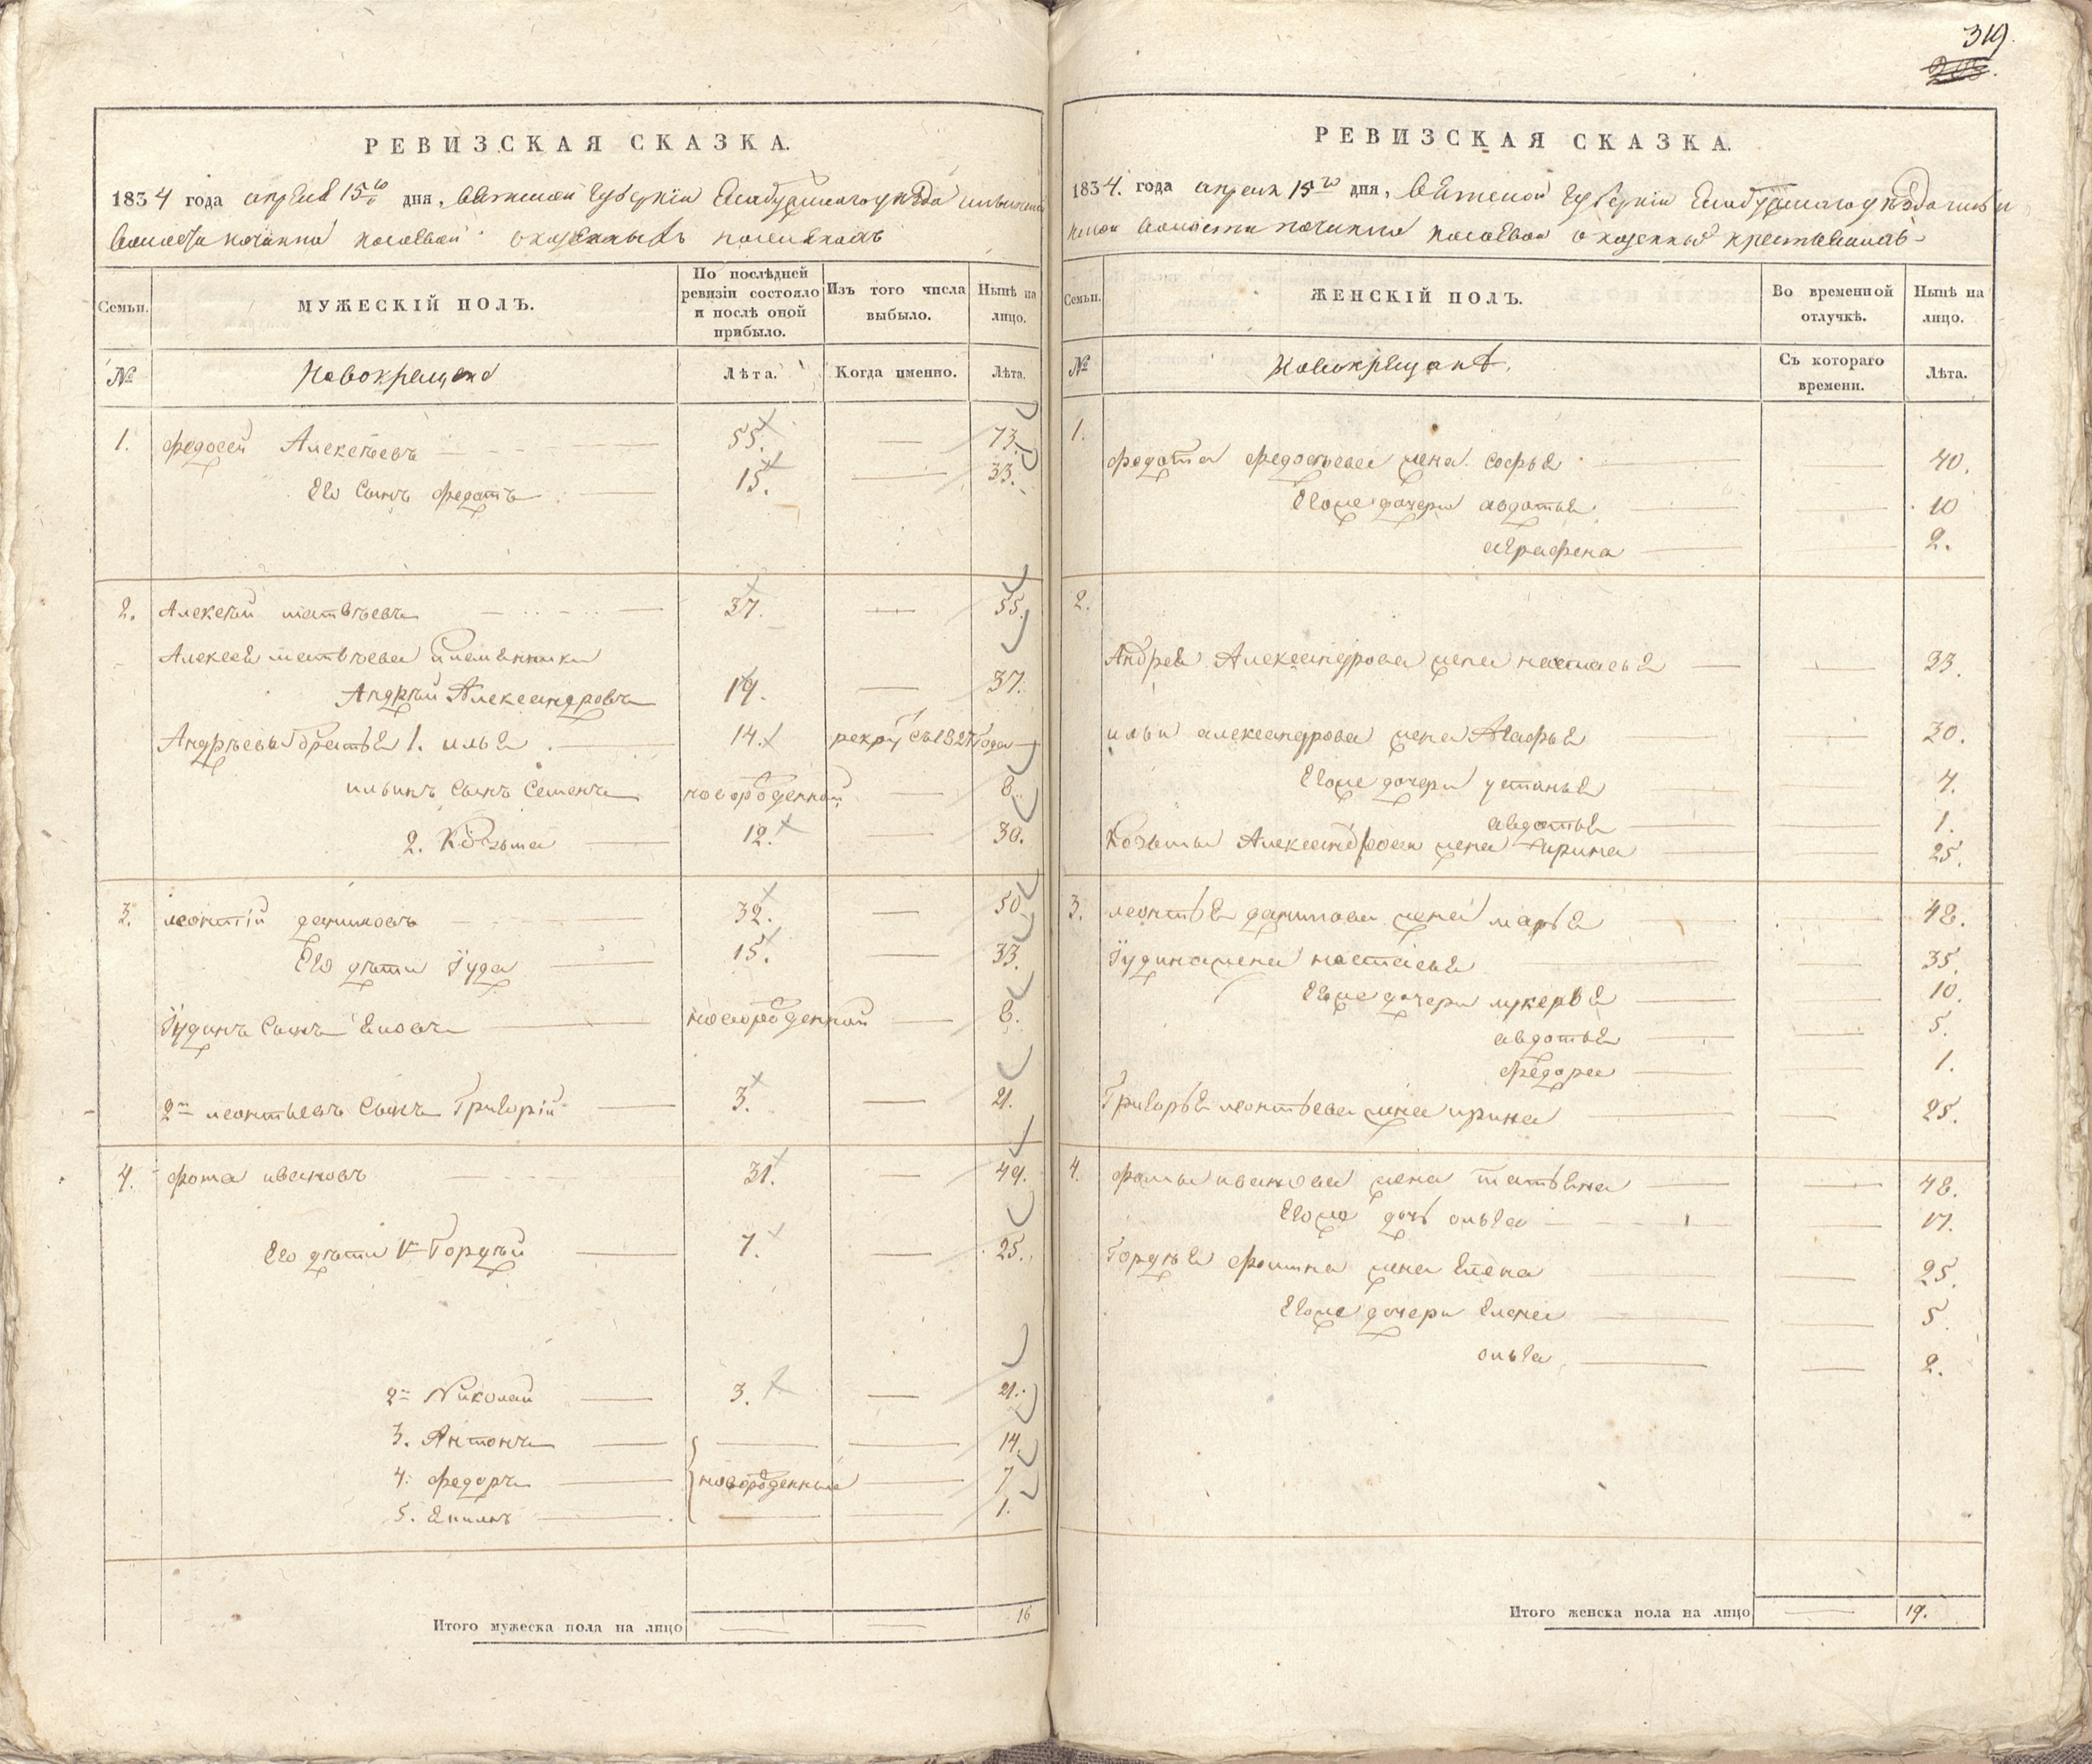 319.
РЕВИЗСКАЯ СКАЗКА.
1834 года апреля 15го дня, Вятской губерніи Елабужскаго уѣзда
волости починка о казенныхъ
Семьи.
МУЖЕСКІЙ ПОЛЪ.
По послѣдней ревизіи состояло и послѣ оной прибыло.
Изъ того числа выбыло.
Нынѣ на лицо.
№
Новокрещена
Лѣта.
Когда именно.
Лѣта.
1. Федосей Алексѣевъ 55. 73.
Его сынъ Федотъ 15. 33.
2. Алексѣй Матвѣевъ 37. 55.
Алексея Матвѣева племянники
Андрѣй Александровъ 19. 37.
Андрѣевы братья 1. Илья 14. рекрут съ 1827 года
Ильинъ сынъ Семенъ новорожденной 8.
2. Козьма 12. 30.
3. Леонтій Даниловъ 32. 50
Его дѣти Іуда 15. 33.
Іудинъ сынъ новорожденной 8.
2й Леонтьевъ сынъ Григорій 3. 21.
4. Фома Ивановъ 31. 49.
Его дѣти 1й Гордѣй 7. 25.
2й Николай 3. 21.
3. Антонъ 14.
4. Федоръ новорожденные 7
5. 1.
Итого мужеска пола на лицо 16
РЕВИЗСКАЯ СКАЗКА.
1834. года апреля 15го дня, Вятской губерніи Елабужскаго уѣзда
волости починка о казенныхъ крестьянахъ
Семьи.
ЖЕНСКІЙ ПОЛЪ.
Во временной отлучкѣ.
Нынѣ на лицо.
№
Новокрещанъ
Съ котораго времени.
Лѣта.
1.
Федота Федосѣева жена Софья 40.
Егоже дочери Авдотья 10
Аграфена 2.
2.
Андрея Александрова жена Настасья 33.
Ильи Александрова жена Агафья 30.
Егоже дочери Устинья 4.
Авдотья 1.
Козьмы Александрова жена Ирина 25.
3. Леонтья Данилова жена Марья 48.
Іудина жена Настасья 35.
Егоже дочери Лукерья 10.
Авдотья 5.
Федора 1.
Григорья Леонтьева жена Ирина 25.
4. Фомы Иванова жена Татьяна 48.
Егоже дочь Ольга 17.
Гордѣя Фомина жена Елена 25.
Егоже дочери Елена 5.
Ольга 2.
Итого женска пола на лицо 19.